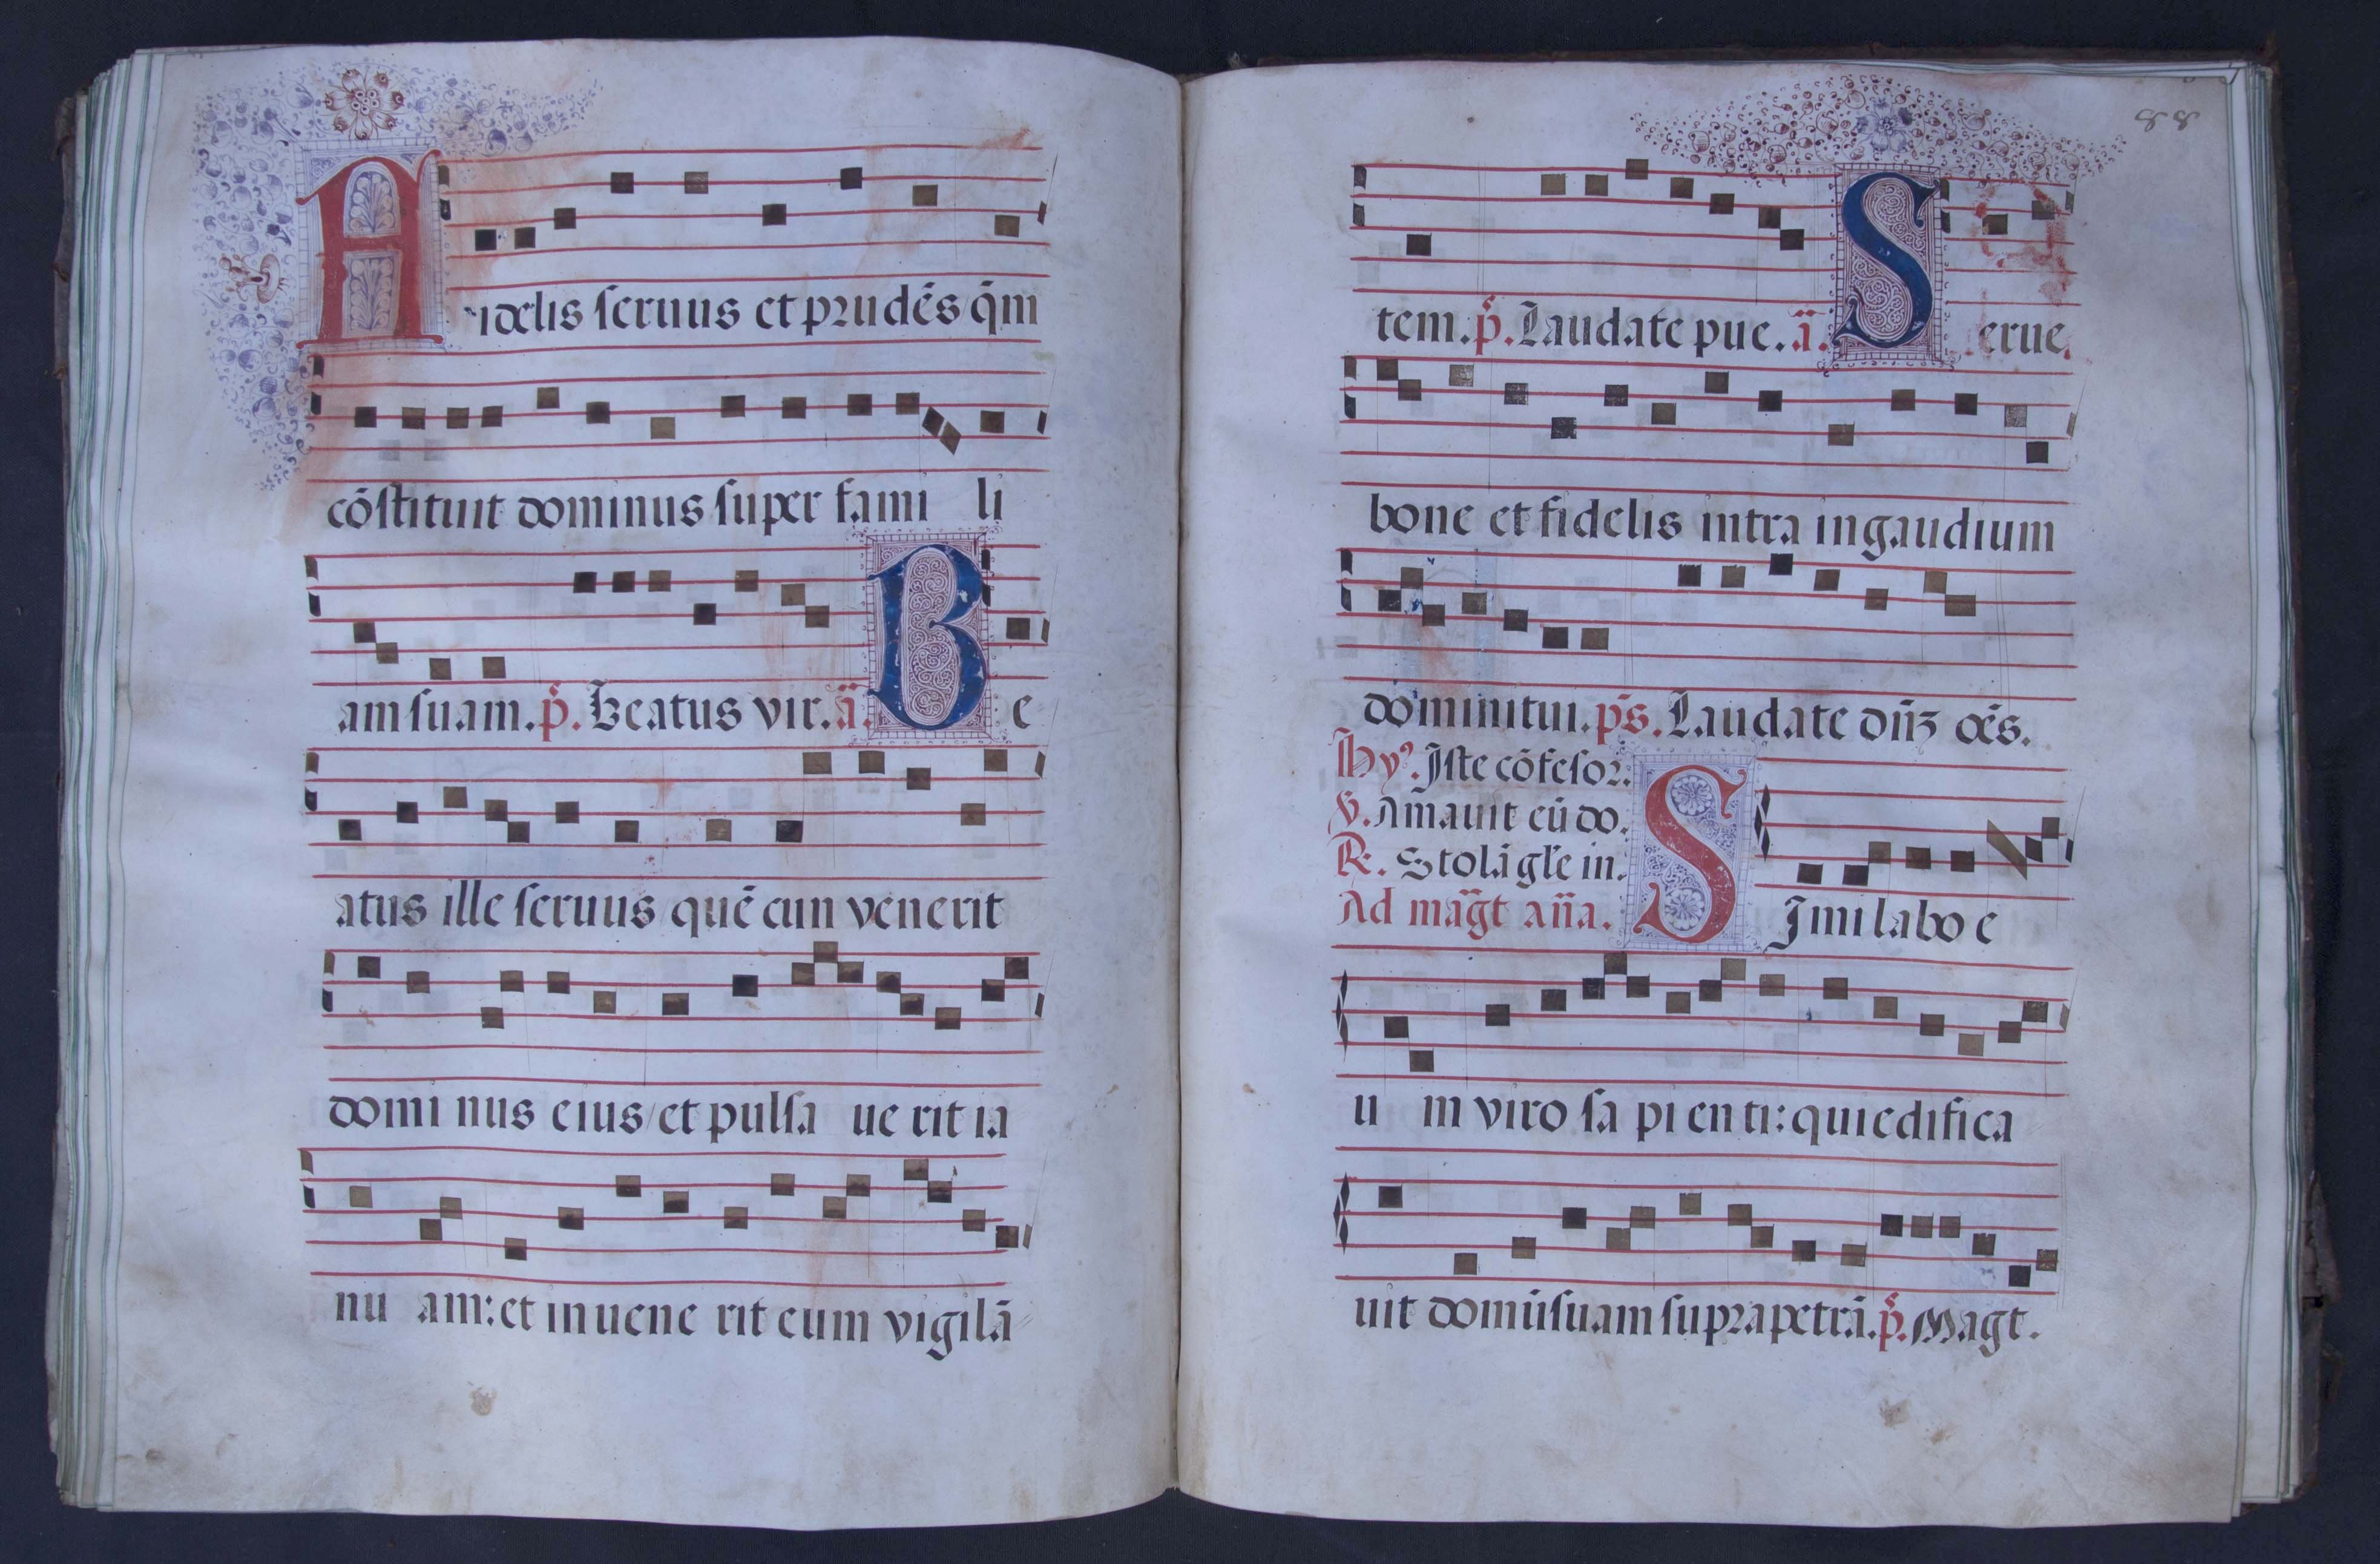 Fidelis seruus et prudēs q̄m
cōstituit dominus super fami li
am suam. p̄. Beatus vir. ā. B e
atus ille seruus quē cun venerit
domi nus eius/et pulsa ue rit ia
nu am: et in uene rit eum vigilā
88
tem. p̄. Laudate pue. ā. S erue
bone et fidelis intra in gaudium
domini tui. ps. Laudate dn̄ʒ oēs.
Hyꝰ. Iste cōfesor.
V. Amauit eū do.
R. Stolā gle in.
Ad maḡt an̄a. SImilabo e
u m viro sa pi en ti: qui edifica
uit domū suam supra petrā. p̄. Magt.